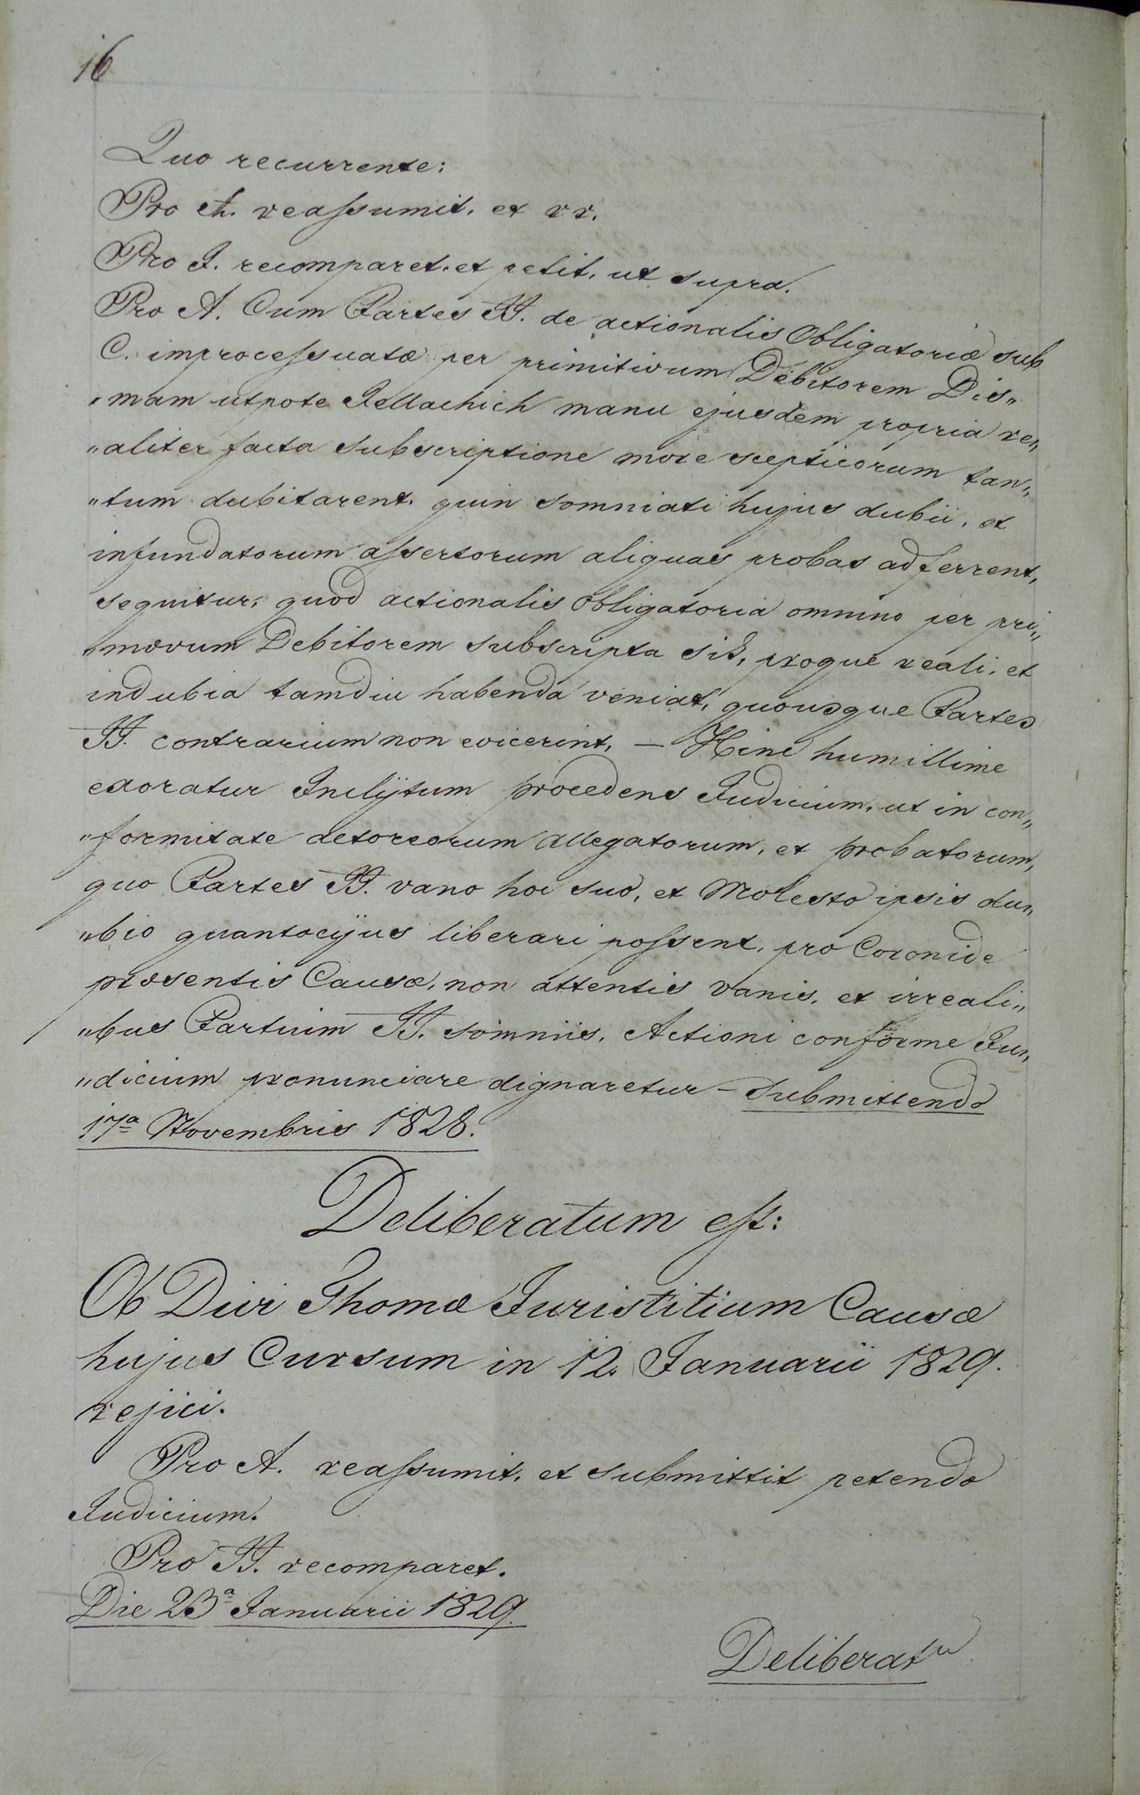 16
Quo recurrente:
Pro A. reassumit. et rr.
Pro I. recomparet. et petit. ut supra.
Pro A. Cum Partes II. de actionalis Obligatoriæ sub
C. improcessuatæ per primitivum Debitorem Dis„
„mam utpote Jellachich manu ejusdem propria re„
„aliter facta subscriptione more scepticorum tan„
„tum dubitarent. quin somniati hujus dubii, et
infundatorum assertorum aliquas probas adferrent,
sequitur, quod actionalis Obligatoria omnino per pri„
„mævum Debitorem subscripta sit, proque reali, et
indubia tamdiu habenda veniat, quousque Partes
II. contrarium non evicerint, — Hinc humillime
exoratur Inclÿtum procedens Judicium, ut in con„
„formitate detorsorum allegatorum, et probatorum,
quo Partes II. vano hoc suo, et Molesto ipsis du„
„bio quantocÿus liberari possent, pro Coronide
præsentis Causæ, non attentis vanis, et irreali„
„bus Partium II. somniis, Actioni conforme Ju„
„dicium pronunciare dignaretur – Submittendo
17ª Novembris 1828.
Deliberatum est:
Ob Divi Thomæ Juristitium Causæ
hujus Cursum in 12. Januarii 1829.
rejici.
Pro A. reassumit, et submittit petendo
Judicium.
Pro II. recomparet.
Die 23ª Januarii 1829.
Deliberatu